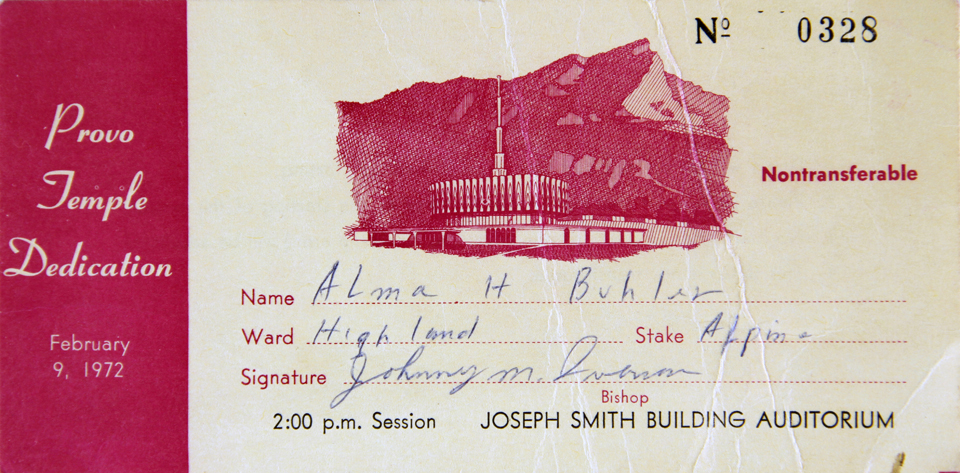 Provo
Temple
Dedication
February
9, 1972
Nº 0328
Nontransferable
Name Alma H Buhler
Ward Highland Stake Alpine
Signature Johnny M.
Bishop
2:00 p.m. Session JOSEPH SMITH BUILDING AUDITORIUM